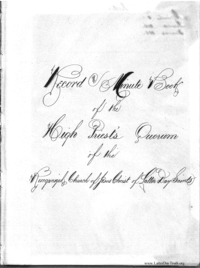 Record & Minute Book
of the
High Priest's Quorum
of the
Church of Jesus Christ of Latter Day Saints